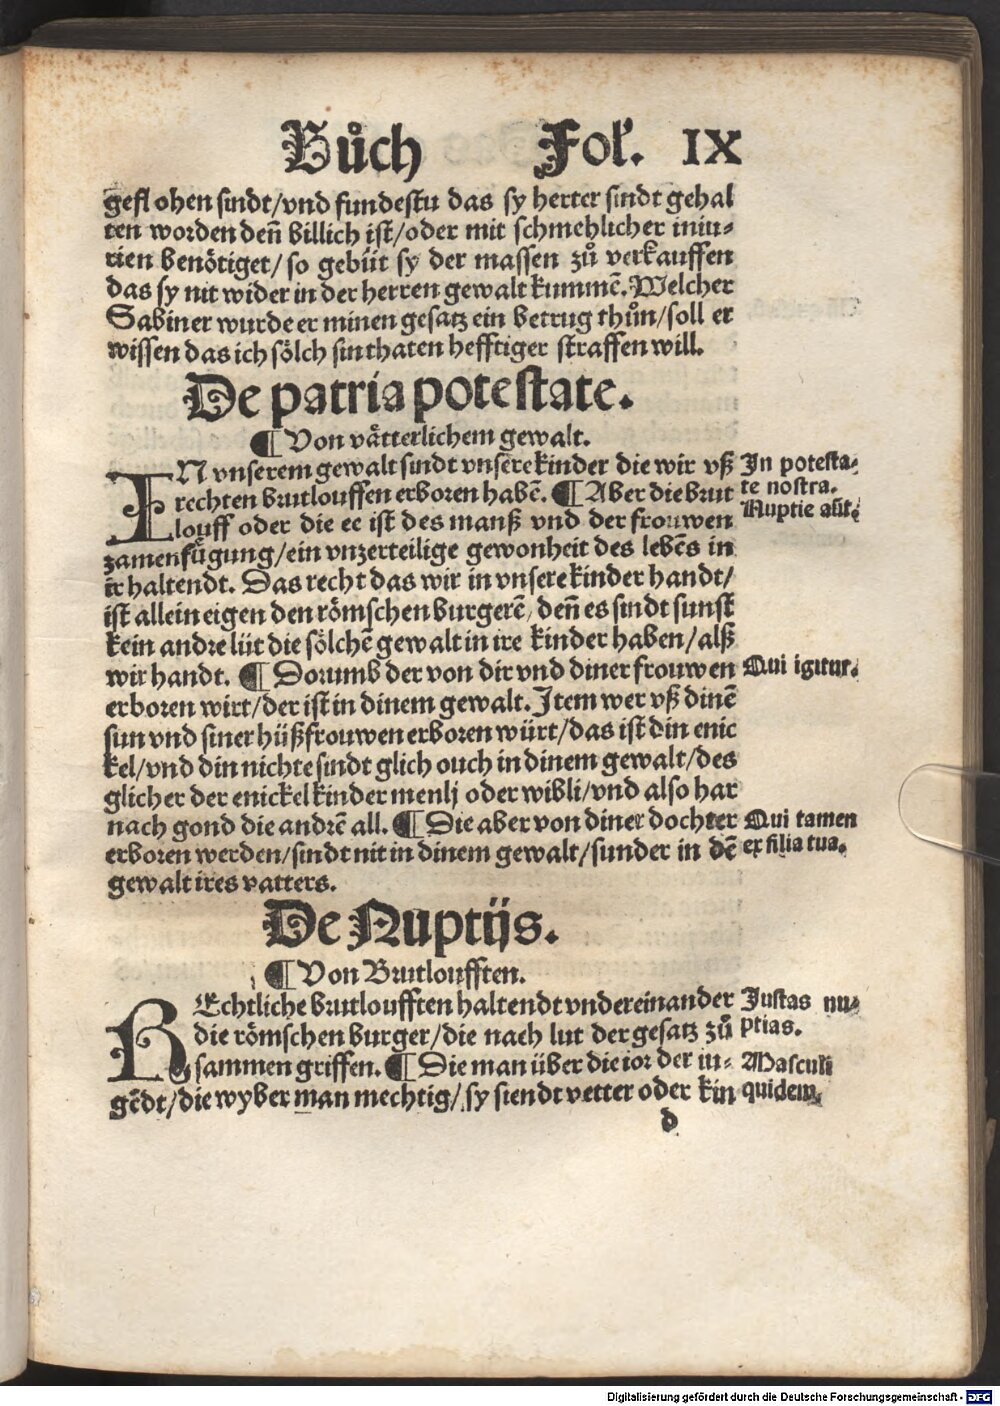 Bůch Fol'. IX
gefl ohen sindt/vnd fundestu das sy herter sindt gehal
ten worden deñ billich ist/oder mit schmehlicher iniu⸗
rien benötiget/ so gebüt sy der massen zů verkauffen
das sy nit wider in der herren gewalt kummē. Welcher
Sabiner wurde er minen gesatz ein betrug thůn/soll er
wissen das ich sölch sinthaten hefftiger straffen will.
De patria potestate.
¶ Von vätterlichem gewalt.
IN vnserem gewalt sindt vnsere kinder die wir vß
rechten brutlouffen erboren habē. ¶ Aber die brut
louff oder die ee ist des manß vnd der frouwen
zamenfůgung/ein vnzerteilige gewonheit des lebēs in
ir haltendt. Das recht das wir in vnsere kinder handt/
ist allein eigen den römschen burgerē/ deñ es sindt sunst
kein andre lüt die sölchē gewalt in ire kinder haben/alß
wir handt. ¶ Dorumb der von dir vnd diner frouwen
erboren wirt/der ist in dinem gewalt. Item wer vß dinē
sun vnd siner hüßfrouwen erboren würt/das ist din enic
kel/vnd din nichte sindt glich ouch in dinem gewalt/des
glich er der enickel kinder menlj oder wibli/vnd also har
nach gond die andrē all. ¶ Die aber von diner dochter
erboren werden/sindt nit in dinem gewalt/sunder in dē
gewalt ires vatters.
In potesta⸗
te nostra.
Nuptie aūt.
Qui igitur.
Qui tamen
ex filia tua.
De Nuptijs.
¶ Von Brutloufften.
REchtliche brutloufften haltendt vndereinander
die römschen burger/die nach lut der gesatz zů
sammen griffen. ¶ Die man über die ior der iu⸗
gēdt/die wyber man mechtig/ sy siendt vetter oder kin
Justas nu⸗
ptias.
Masculi
quidem.
d
Digitalisierung gefördert durch die Deutsche Forschungsgemeinschaft - DFG